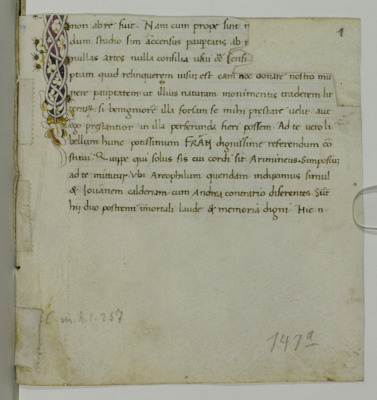 1
non ab re fuit. Nam cum prope sint n
dum studio sim accensus paupertatis ab i
nullas artes nulla consilia usui de sensi
ptam quid relinquerem uisus est eam hoc donare nostro mu
nere paupertatem ut illius naturam monimentis traderem lit
si benigniorē illa forsan se mihi prestare uelit aut
ego prestantior in illa perferunda fieri possem. Ad te uero li
bellum hunc potissimum FRAN dignissime referendum cō
stitui. Quippe qui solus sis cui cordi sit Arimineus Simposiū
ad te mittitur. Vbi Areophilum quendam indipamus simul
& Iouānem calderam cum Andrea contrario diserentes. Sūt
hii duo postremi imortali laude & memoria digni. Hic n
C. m. h. 1. 257
147a